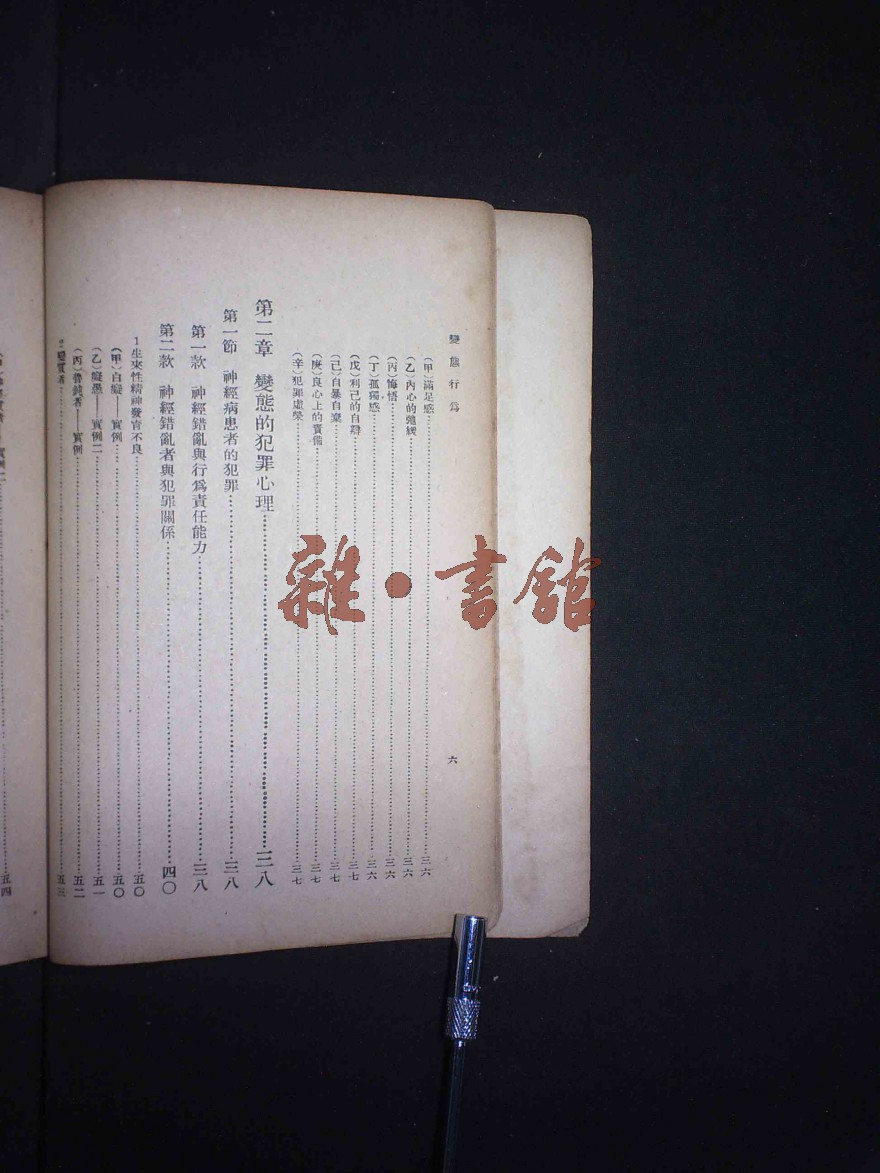 變態行爲
六
(甲)滿足感……三六
(乙)內心的弛緩……三六
(丙)悔悟……三六
(丁)孤獨感……三六
(戊)利己的自辯……三七
(己)自暴自棄……三七
(庚)良心上的責備……三七
(辛)犯罪虛榮……三七
第二章 變態的犯罪心理……三八
第一節 神經病患者的犯罪……三八
第一款 神經錯亂與行爲責任能力……三八
第二款 神經錯亂者與犯罪關係……四〇
1生來性精神發育不良……五〇
(甲)白癡——實例……五〇
(乙)癡愚——實例二……五一
(丙)魯鈍者——實例……五二
2變質者……五三
五四
雜·書館